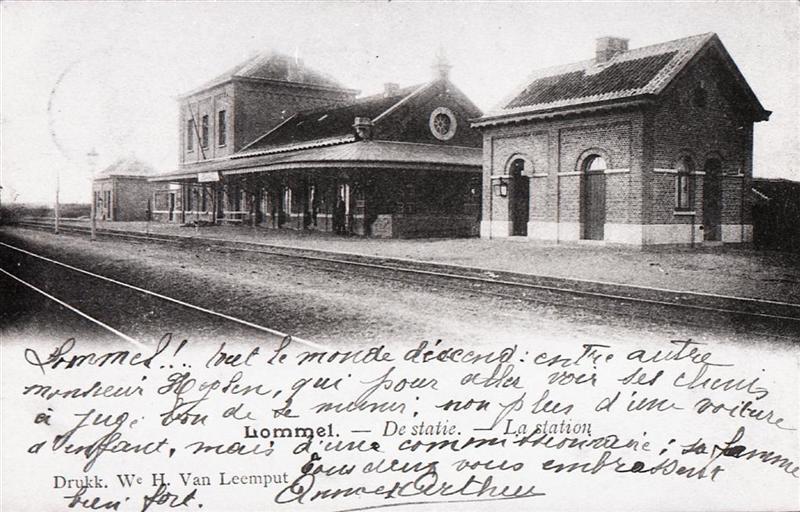 Lommel!.. tout le monde descend: entre autre
monsieur Hoplen, qui pour aller voir ses chers
a jugé bon de se munir; non plus d'une voiture
Lommel. — De statie. — La station
d'enfant, mais d'une commissionnaire; sa femme
Tous deux vous embrassent
Drukk. We H. Van Leemput
bien fort. Anna & Arthur